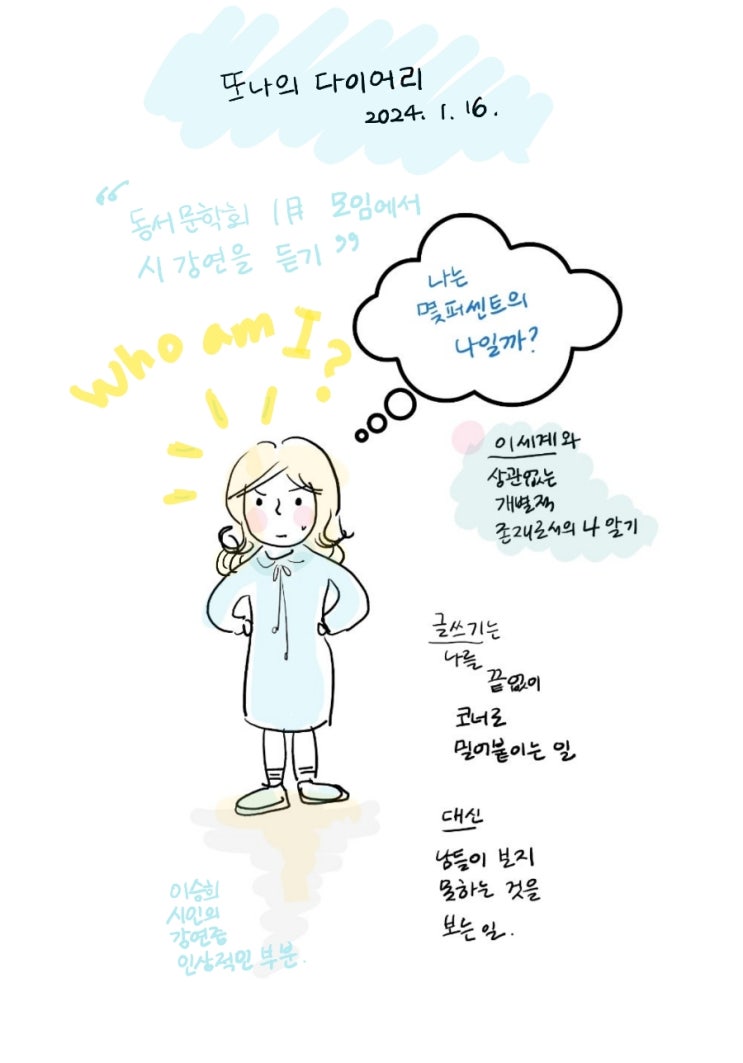 또나의 다이어리
2024. 1. 16.
“동서문학회 1月 모임에서
시 강연을 듣기”
who am I?
나는
몇퍼센트의
나일까?
이세계와
상관없는
개별적
존재로서의 나 알기
글쓰기는
나를
끝없이
코너로
밀어붙이는 일
대신
남들이 보지
못하는 것을
보는 일.
이승희
시인의
강연중
인상적인 부분.